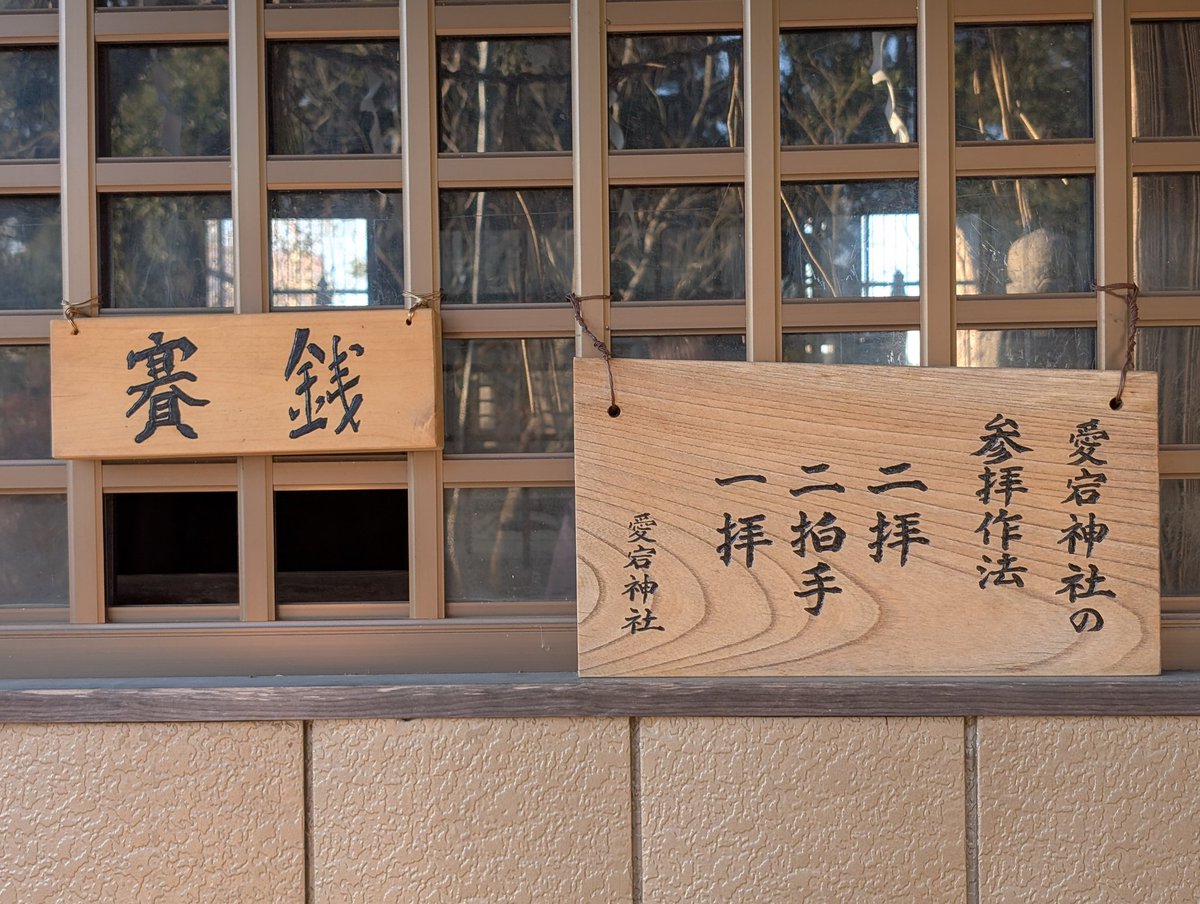 賽銭
愛宕神社の
参拝作法
二拝
二拍手
一拝
愛宕神社